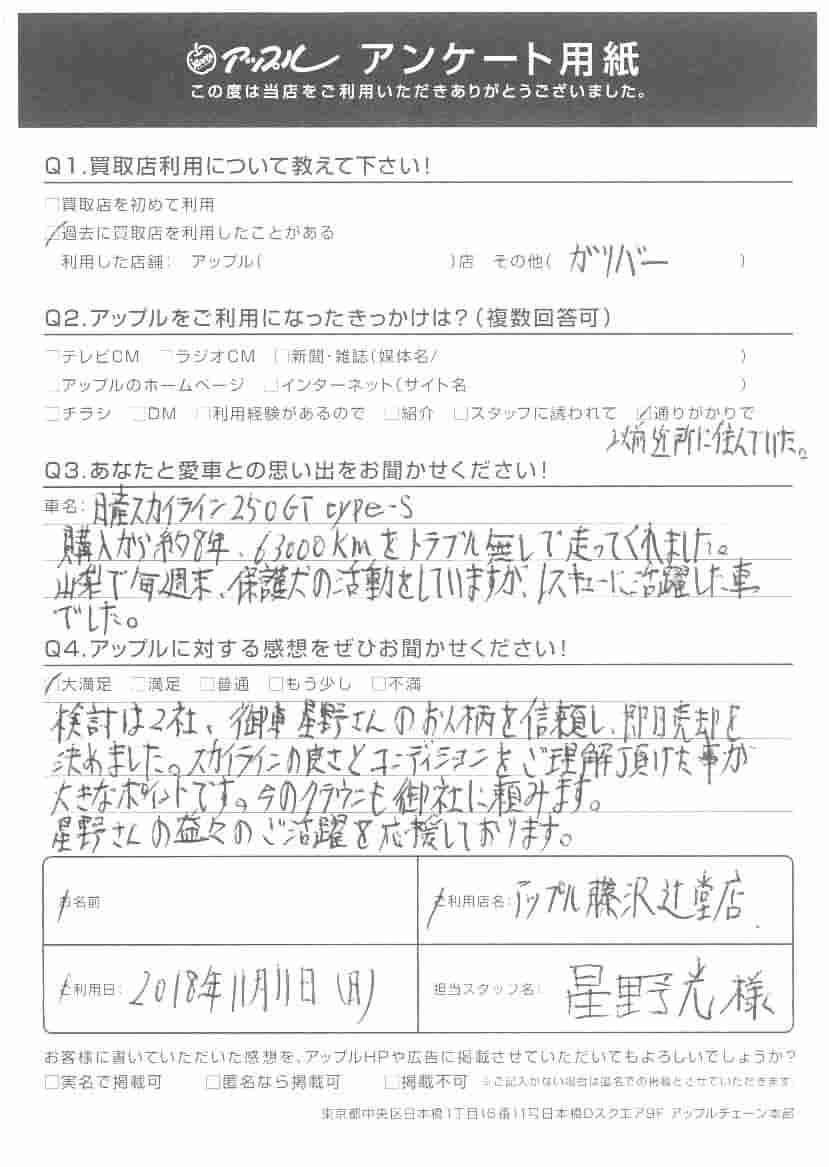 アップル アンケート用紙
この度は当店をご利用いただきありがとうございました。
Q1.買取店利用について教えて下さい!
□買取店を初めて利用
☑過去に買取店を利用したことがある
利用した店舗: アップル( )店 その他( ガリバー )
Q2.アップルをご利用になったきっかけは?(複数回答可)
□テレビCM □ラジオCM □新聞・雑誌(媒体名/ )
□アップルのホームページ □インターネット(サイト名 )
□チラシ □DM □利用経験があるので □紹介 □スタッフに誘われて ☑通りがかりで
以前近所に住んでいた。
Q3.あなたと愛車との思い出をお聞かせください!
車名: 日産スカイライン250GT type-S
購入から約8年、63000Kmをトラブル無しで走ってくれました。
山梨で毎週末、保護犬の活動をしていますが、レスキューに活躍した車
でした。
Q4.アップルに対する感想をぜひお聞かせください!
☑大満足 □満足 □普通 □もう少し □不満
検討は2社、御車星野さんのお人柄を信頼し、即日売却を
決めました。スカイラインの良さとコンディションをご理解頂けた事が
大きなポイントです。今のクラウンも御社に頼みます。
星野さんの益々のご活躍を応援しております。
お名前
ご利用店名: アップル藤沢辻堂店
ご利用日: 2018年11月11日(月)
担当スタッフ名: 星野光様
お客様に書いていただいた感想を、アップルHPや広告に掲載させていただいてもよろしいでしょうか?
□実名で掲載可 □匿名なら掲載可 □掲載不可 ※ご記入がない場合は匿名での掲載とさせていただきます。
東京都中央区日本橋1丁目16番11号日本橋Dスクエア9F アップルチェーン本部